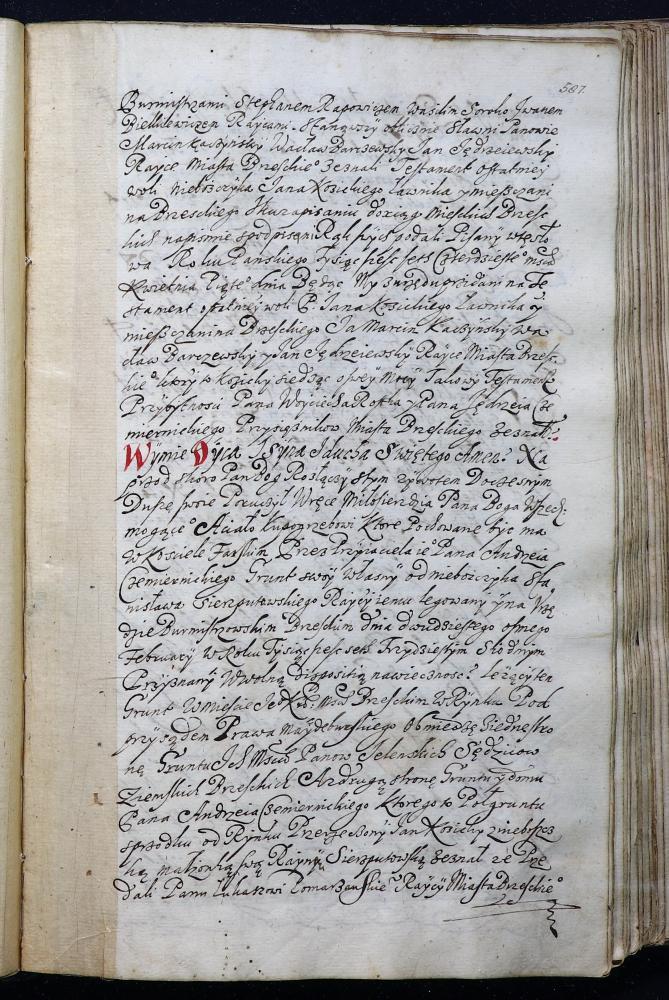 587.
Burmistrzami Stephanem Rapowiczem Wasilim Soroko Jwanem
Bielkiewiczem Raycami. Stanąwszy oblicznie Sławni Panowie
Marcin Kaczynskÿ Wacław Barczewskÿ Jan Jędrzeiewskÿ
Rayce Miasta Brzeskie° Zeznali Testament ostatniey
woli Nieboszczyka Jana Kozickiego Ławnika ÿ mieszczani
na Brzeskiego Ku zapisaniu do xiąg Mieskich Brzes
kich na pismie spodpisem Rąk swych podali Pisany w te sło
wa Roku Panskiego tysiąc szesc set Czterdzieste° msca
Kwietnia Piąte° dnia Będąc My z urzędu przidani na Te
stament ostatniey woli P. Jana Kozickiego Ławnika ÿ
mieszczanina Brzeskiego Ja Marcin Kaczynskÿ Wa
cław Barczewskÿ ÿ Jan Jędrzeiewskÿ Rayce Miasta Brzes
kie° ktory to Kozicky siedząc o swey Mocy Takowy Testament
Przy bytnosci Pana Woyciecha Rostka ÿ Pana Jędrzeia Cze
miernickiego Przysięznikow Miasta Brzeskiego Zeznał:
W ÿmie Oÿca ÿ Sÿna ÿ ducha Swiętego Amen. Na
przod skoro Pan Bog Rosłączÿ s tym zywotem Doczesnym
Duszę swoię Poruczył W ręce Miłosierdzia Pana Boga Wszech
mogące° A ciało ku pogrzebowi Ktore Pochowane byc ma
w Kosciele Farskim Przez Przyiaciela ie° Pana Andrzeia
Czemiernickiego Grunt swoÿ własnÿ od nieboszczyka Sta
nisława Sierzputowskiego Raycÿ iemu legowany ÿ na Vrzę
dzie Burmistrzowskim Brzeskim dnia dwudziestego osmego
February W Roku Tysiąc szesc set Trzydziestym Siodmym
Przyznanÿ W wolną dispositią na wiecznosc. Lezący ten
Grunt W Miescie Je° K. Msci Brzeskim w Rynku Pod
przysądem Prawa Maydeburskiego O miedzę z iednę stro
nę Gruntu Ich Msciow Panow Jelenskich Sędziow
Ziemskich Brzeskich A z drugą stronę Gruntu ÿ domu
Pana Andrzeia Czemiernickiego Ktorego to Puł gruntu
s przodku od Rynku Przerzeczonÿ Jan Kozicky z nieboszcz
ką małzonką swą Sierzputowską Zeznał ze Prze
dali Panu Łukaszowi Raycy Miasta Brzeskie°